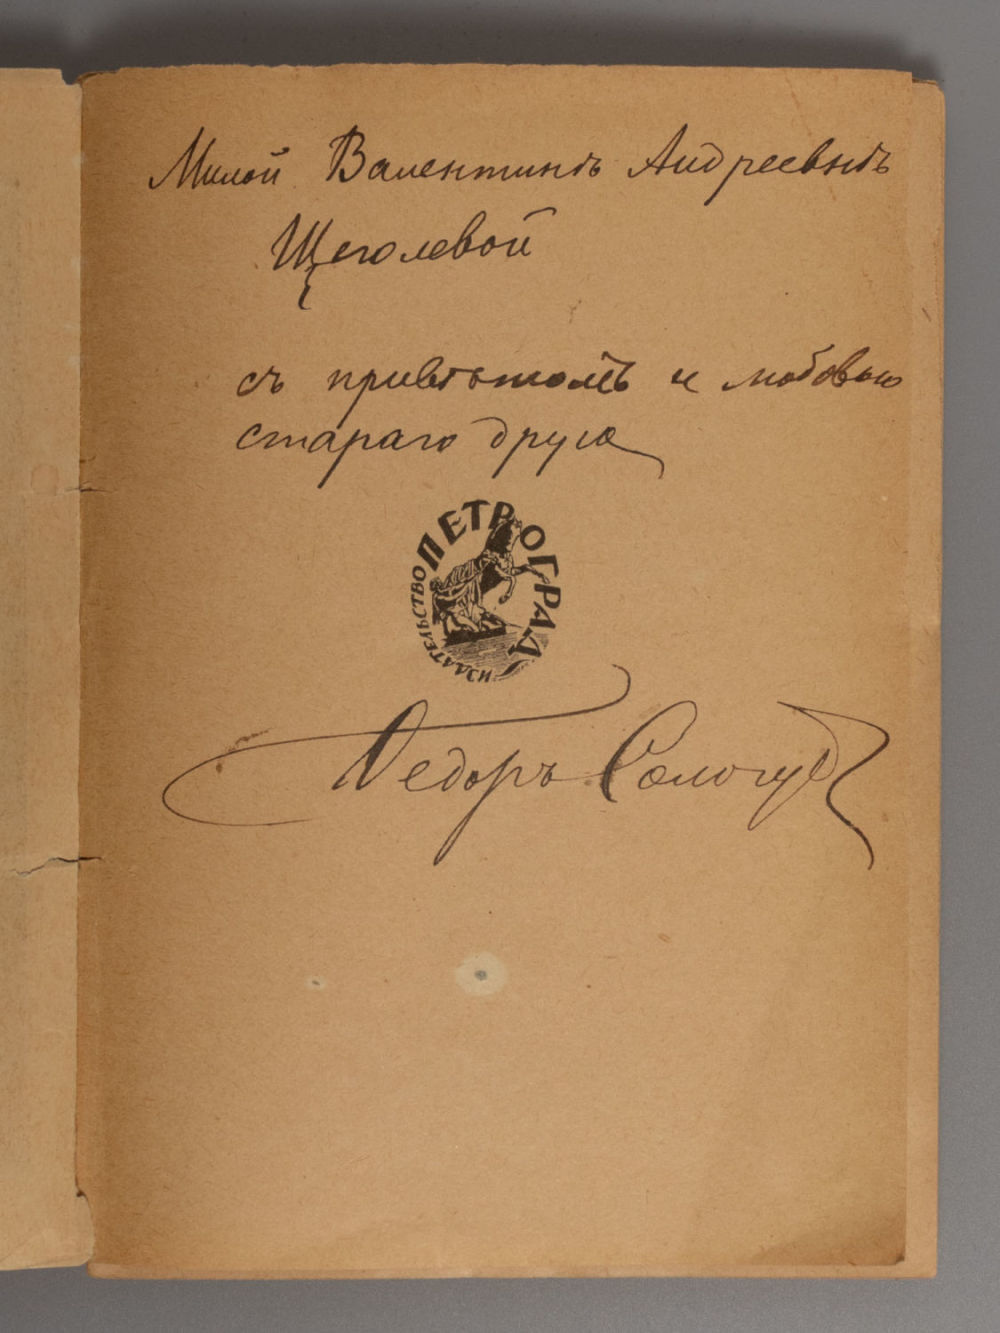 Милой Валентинѣ Андреевнѣ
Щеголевой
съ привѣтомъ и любовью
стараго друга
ИЗДАТЕЛЬСТВО ПЕТРОГРАД
Ѳедоръ Сологуб